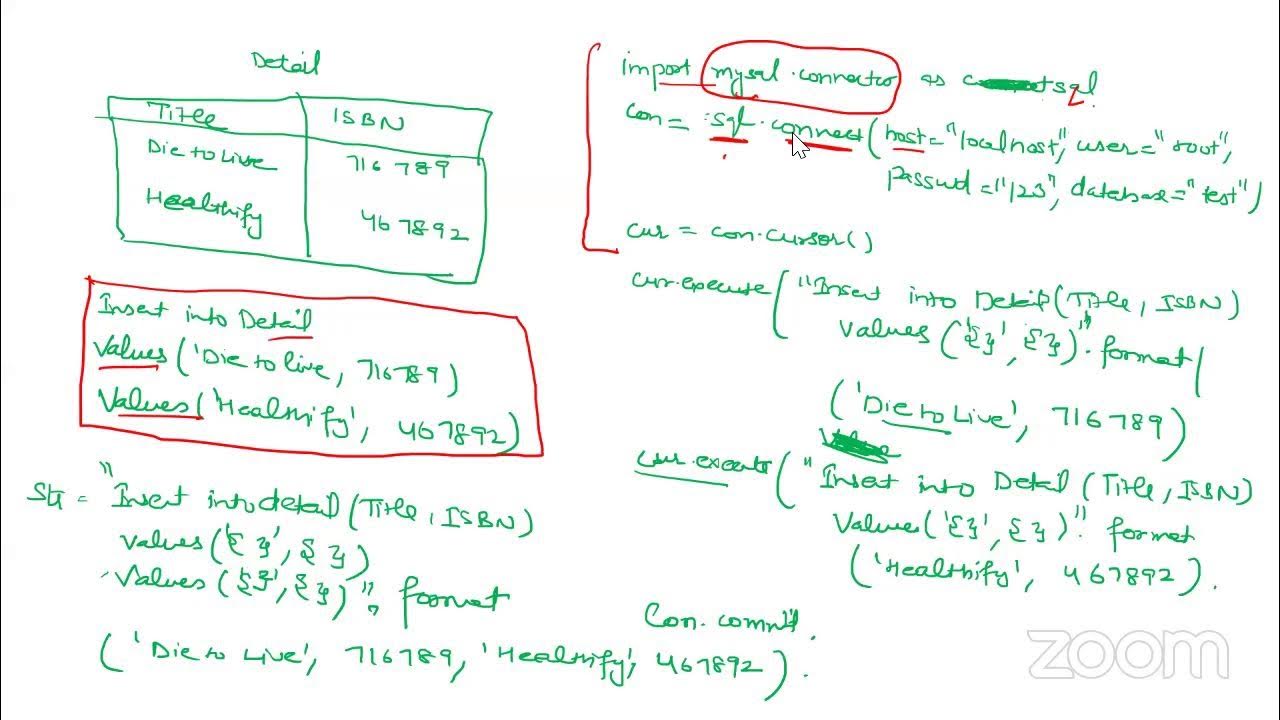 Detail
Title ISBN
Die to Live 716789
Healthify 467892
Insert into Detail
Values ('Die to live, 716789)
Values ('Healthify', 467892)
Str = "Insert into detail (Title, ISBN)
values ('{}', {})
Values ('{}', {})". format
('Die to Live', 716789, 'Healthify', 467892).
import mysql.connector as sql
con = sql.connect(host="localhost", user="root",
passwd="123", database="test")
cur = con.cursor()
cur.execute("Insert into Detail(Title, ISBN)
values ('{}', {})".format(
('Die to Live', 716789)
cur.execute("Insert into Detail (Title, ISBN)
Values('{}', {})". format
('Healthify', 467892).
Con.commit.
zoom